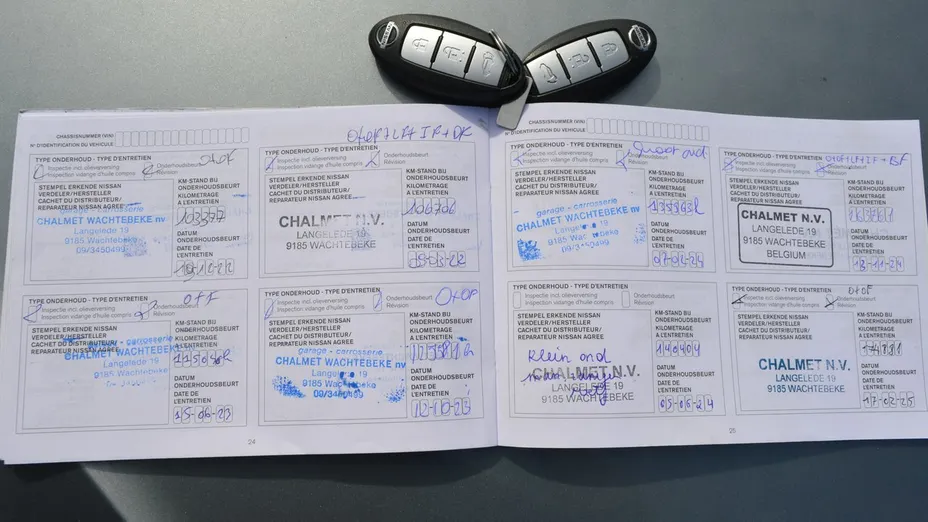 CHASSISNUMMER (VIN)
N° D'IDENTIFICATION DU VEHICULE
TYPE ONDERHOUD - TYPE D'ENTRETIEN
Inspectie incl. olieverversing
Inspection vidange d'huile compris
Onderhoudsbeurt
Révision
STEMPEL ERKENDE NISSAN
VERDELER/HERSTELLER
CACHET DU DISTRIBUTEUR/
REPARATEUR NISSAN AGREE
garage - carrosserie
CHALMET WACHTEBEKE nv
Langelede 19
9185 Wachtebeke
09/3450499
KM-STAND BIJ
ONDERHOUDSBEURT
KILOMETRAGE
A L'ENTRETIEN
DATUM
ONDERHOUDSBEURT
DATE DE
L'ENTRETIEN
TYPE ONDERHOUD - TYPE D'ENTRETIEN
Inspectie incl. olieverversing
Inspection vidange d'huile compris
Onderhoudsbeurt
Révision
STEMPEL ERKENDE NISSAN
VERDELER/HERSTELLER
CACHET DU DISTRIBUTEUR/
REPARATEUR NISSAN AGREE
CHALMET N.V.
LANGELEDE 19
9185 WACHTEBEKE
KM-STAND BIJ
ONDERHOUDSBEURT
KILOMETRAGE
A L'ENTRETIEN
DATUM
ONDERHOUDSBEURT
DATE DE
L'ENTRETIEN
TYPE ONDERHOUD - TYPE D'ENTRETIEN
Inspectie incl. olieverversing
Inspection vidange d'huile compris
Onderhoudsbeurt
Révision
STEMPEL ERKENDE NISSAN
VERDELER/HERSTELLER
CACHET DU DISTRIBUTEUR/
REPARATEUR NISSAN AGREE
garage - carrosserie
CHALMET WACHTEBEKE
Langelede 19
9185 Wachtebeke
KM-STAND BIJ
ONDERHOUDSBEURT
KILOMETRAGE
A L'ENTRETIEN
DATUM
ONDERHOUDSBEURT
DATE DE
L'ENTRETIEN
15-06-23
TYPE ONDERHOUD - TYPE D'ENTRETIEN
Inspectie incl. olieverversing
Inspection vidange d'huile compris
Onderhoudsbeurt
Révision
STEMPEL ERKENDE NISSAN
VERDELER/HERSTELLER
CACHET DU DISTRIBUTEUR/
REPARATEUR NISSAN AGREE
garage - carrosserie
CHALMET WACHTEBEKE nv
9185 Wachtebeke
09/3450499
KM-STAND BIJ
ONDERHOUDSBEURT
KILOMETRAGE
A L'ENTRETIEN
DATUM
ONDERHOUDSBEURT
DATE DE
L'ENTRETIEN
12-10-23
24
CHASSISNUMMER (VIN)
N° D'IDENTIFICATION DU VEHICULE
TYPE ONDERHOUD - TYPE D'ENTRETIEN
Inspectie incl. olieverversing
Inspection vidange d'huile compris
Groot ond.
STEMPEL ERKENDE NISSAN
VERDELER/HERSTELLER
CACHET DU DISTRIBUTEUR/
REPARATEUR NISSAN AGREE
garage - carrosserie
CHALMET WACHTEBEKE nv
09/3450499
KM-STAND BIJ
ONDERHOUDSBEURT
KILOMETRAGE
A L'ENTRETIEN
DATUM
ONDERHOUDSBEURT
DATE DE
L'ENTRETIEN
07-02-24
TYPE ONDERHOUD - TYPE D'ENTRETIEN
Inspectie incl. olieverversing
Inspection vidange d'huile compris
Onderhoudsbeurt
Révision
STEMPEL ERKENDE NISSAN
VERDELER/HERSTELLER
CACHET DU DISTRIBUTEUR/
REPARATEUR NISSAN AGREE
CHALMET N.V.
LANGELEDE 19
9185 WACHTEBEKE
BELGIUM
KM-STAND BIJ
ONDERHOUDSBEURT
KILOMETRAGE
A L'ENTRETIEN
DATUM
ONDERHOUDSBEURT
DATE DE
L'ENTRETIEN
13-11-24
TYPE ONDERHOUD - TYPE D'ENTRETIEN
Inspectie incl. olieverversing
Inspection vidange d'huile compris
Onderhoudsbeurt
Révision
STEMPEL ERKENDE NISSAN
VERDELER/HERSTELLER
CACHET DU DISTRIBUTEUR/
REPARATEUR NISSAN AGREE
Klein ond
CHALMET N.V.
LANGELEDE 19
9185 WACHTEBEKE
KM-STAND BIJ
ONDERHOUDSBEURT
KILOMETRAGE
A L'ENTRETIEN
140404
DATUM
ONDERHOUDSBEURT
DATE DE
L'ENTRETIEN
05-06-24
TYPE ONDERHOUD - TYPE D'ENTRETIEN
Inspectie incl. olieverversing
Inspection vidange d'huile compris
Onderhoudsbeurt
Révision
STEMPEL ERKENDE NISSAN
VERDELER/HERSTELLER
CACHET DU DISTRIBUTEUR/
REPARATEUR NISSAN AGREE
CHALMET N.V.
LANGELEDE 19
9185 WACHTEBEKE
KM-STAND BIJ
ONDERHOUDSBEURT
KILOMETRAGE
A L'ENTRETIEN
DATUM
ONDERHOUDSBEURT
DATE DE
L'ENTRETIEN
17-02-25
25